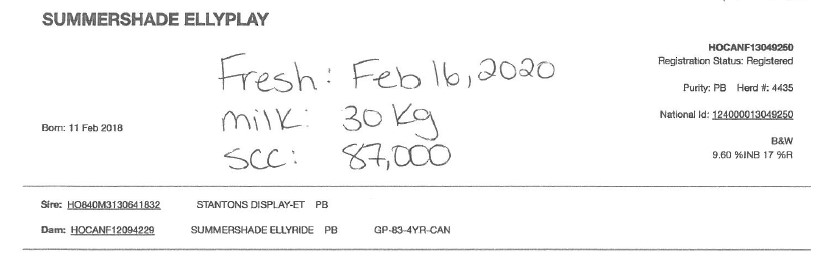 SUMMERSHADE ELLYPLAY
HOCANF13049250
Registration Status: Registered
Fresh: Feb 16, 2020
Purity: PB Herd #: 4435
milk: 30 Kg
National Id: 124000013049250
Born: 11 Feb 2018
B&W
SCC: 87,000
9.60 %INB 17 %R
Sire: HO840M3130641832 STANTONS DISPLAY-ET PB
Dam: HOCANF12094229 SUMMERSHADE ELLYRIDE PB GP-83-4YR-CAN